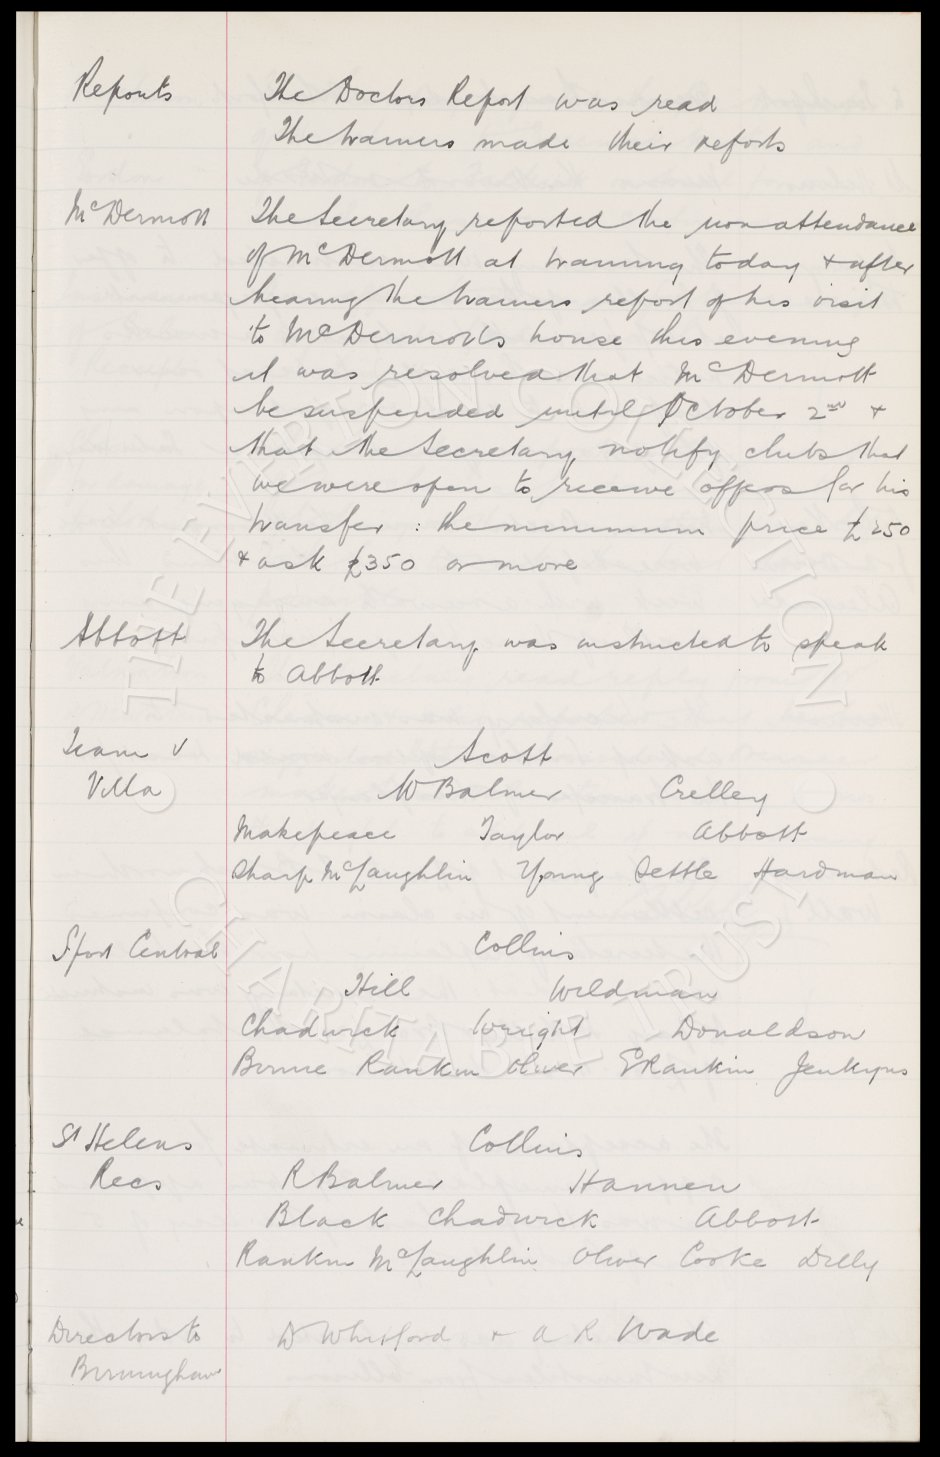 Reports The Doctors Report was read
The trainers made their reports
McDermott The Secretary reported the non attendance
of McDermott at training today & after
hearing the trainers report of his visit
to McDermotts house this evening
it was resolved that McDermott
be suspended until October 2nd &
that the Secretary notify clubs that
we were open to receive offers for his
transfer : the minimum price £250
& ask £350 or more
Abbott The Secretary was instructed to speak
to Abbott
Team v Scott
Villa W Balmer Crelley
Makepeace Taylor Abbott
Sharp McLaughlin Young Settle Hardman
Sport Central Collins
Hill Wildman
Chadwick Wright Donaldson
Birnie Rankin Oliver E Rankin Jenkyns
St Helens Collins
Recs R Balmer Hannen
Black Chadwick Abbott
Rankin McLaughlin Oliver Cooke Dilly
Directors to D Whitford & A R Wade
Birmingham
THE EVERTON COLLECTION
CHARITABLE TRUST